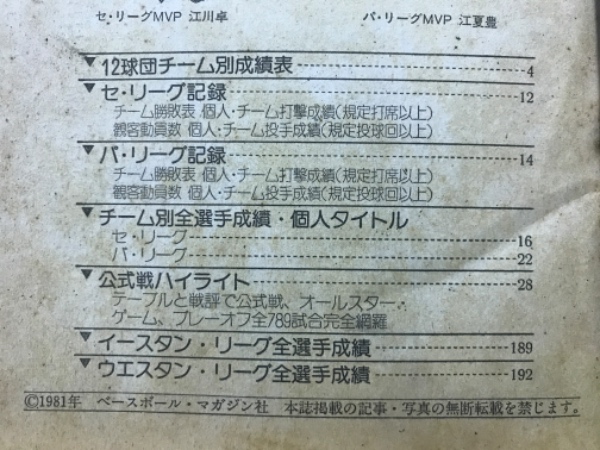 セ・リーグMVP 江川卓
パ・リーグMVP 江夏豊
▼12球団チーム別成績表 4
▼セ・リーグ記録 12
チーム勝敗表 個人・チーム打撃成績(規定打席以上)
観客動員数 個人・チーム投手成績(規定投球回以上)
▼パ・リーグ記録 14
チーム勝敗表 個人・チーム打撃成績(規定打席以上)
観客動員数 個人・チーム投手成績(規定投球回以上)
▼チーム別全選手成績・個人タイトル
セ・リーグ 16
パ・リーグ 22
▼公式戦ハイライト 28
テーブルと戦評で公式戦、オールスター・
ゲーム、プレーオフ全789試合完全網羅
▼イースタン・リーグ全選手成績 189
▼ウエスタン・リーグ全選手成績 192
©1981年 ベースボール・マガジン社 本誌掲載の記事・写真の無断転載を禁じます。